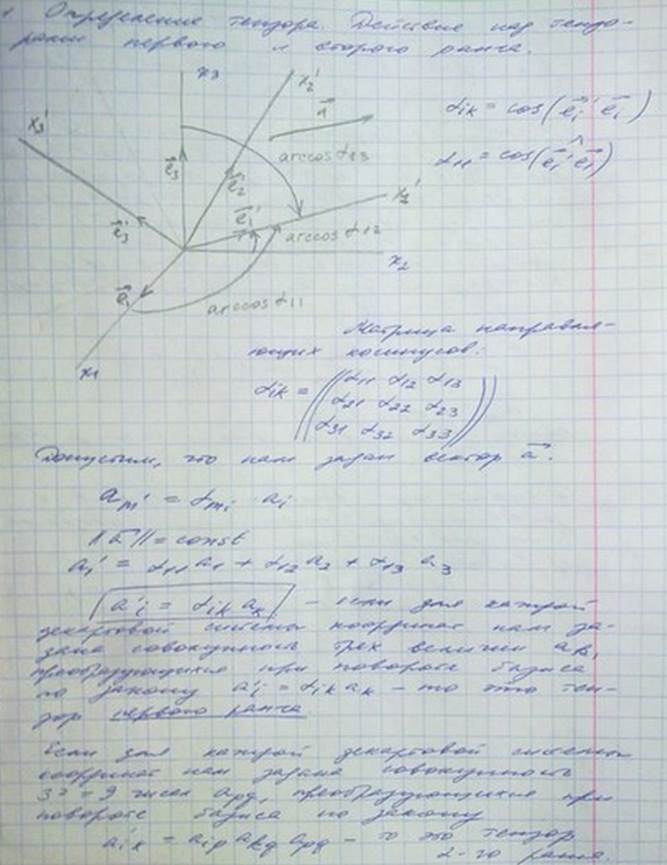 1. Определение тензора. Действие над тензо-
рами первого и второго ранга.
x3
x2'
x3'
a⃗
αik = cos(e⃗i' e⃗i)
α11 = cos(e⃗1' e⃗1)
arccos α13
e⃗3
e⃗2
e⃗1'
x1'
e⃗3'
arccos α12
x2
e⃗1
arccos α11
x1
Матрица направля-
ющих косинусов:
αik = ((α11 α12 α13
α21 α22 α23
α31 α32 α33))
Допустим, что нам задан вектор a⃗.
am' = αmi · ai
||a⃗|| = const
a1' = α11 a1 + α12 a2 + α13 a3
a'i = αik ak – если для каждой
декартовой системы координат нам за-
дана совокупность трёх величин ak,
преобразующихся при повороте базиса
по закону a'i = αik ak – то это тен-
зор первого ранга.
Если для каждой декартовой системы
координат нам задана совокупность
3² = 9 чисел apq, преобразующихся при
повороте базиса по закону
a'ik = aip akq apq – то это тензор
2-го ранга.